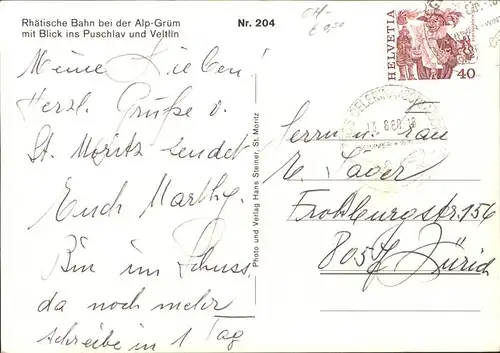 Rhätische Bahn bei der Alp-Grüm
mit Blick ins Puschlav und Veltlin
Nr. 204
CH-
€ 0,50
HELVETIA
40
Meine Lieben!
Herzl. Grüße v.
St. Moritz sendet
Euch Marthy.
Bin im Schuss,
da noch mehr
schreibe in 1 Tag
Photo und Verlag Hans Steiner, St. Moritz
Herrn u. Frau
E. Sager
Frohburgstr. 156
8057 Zürich